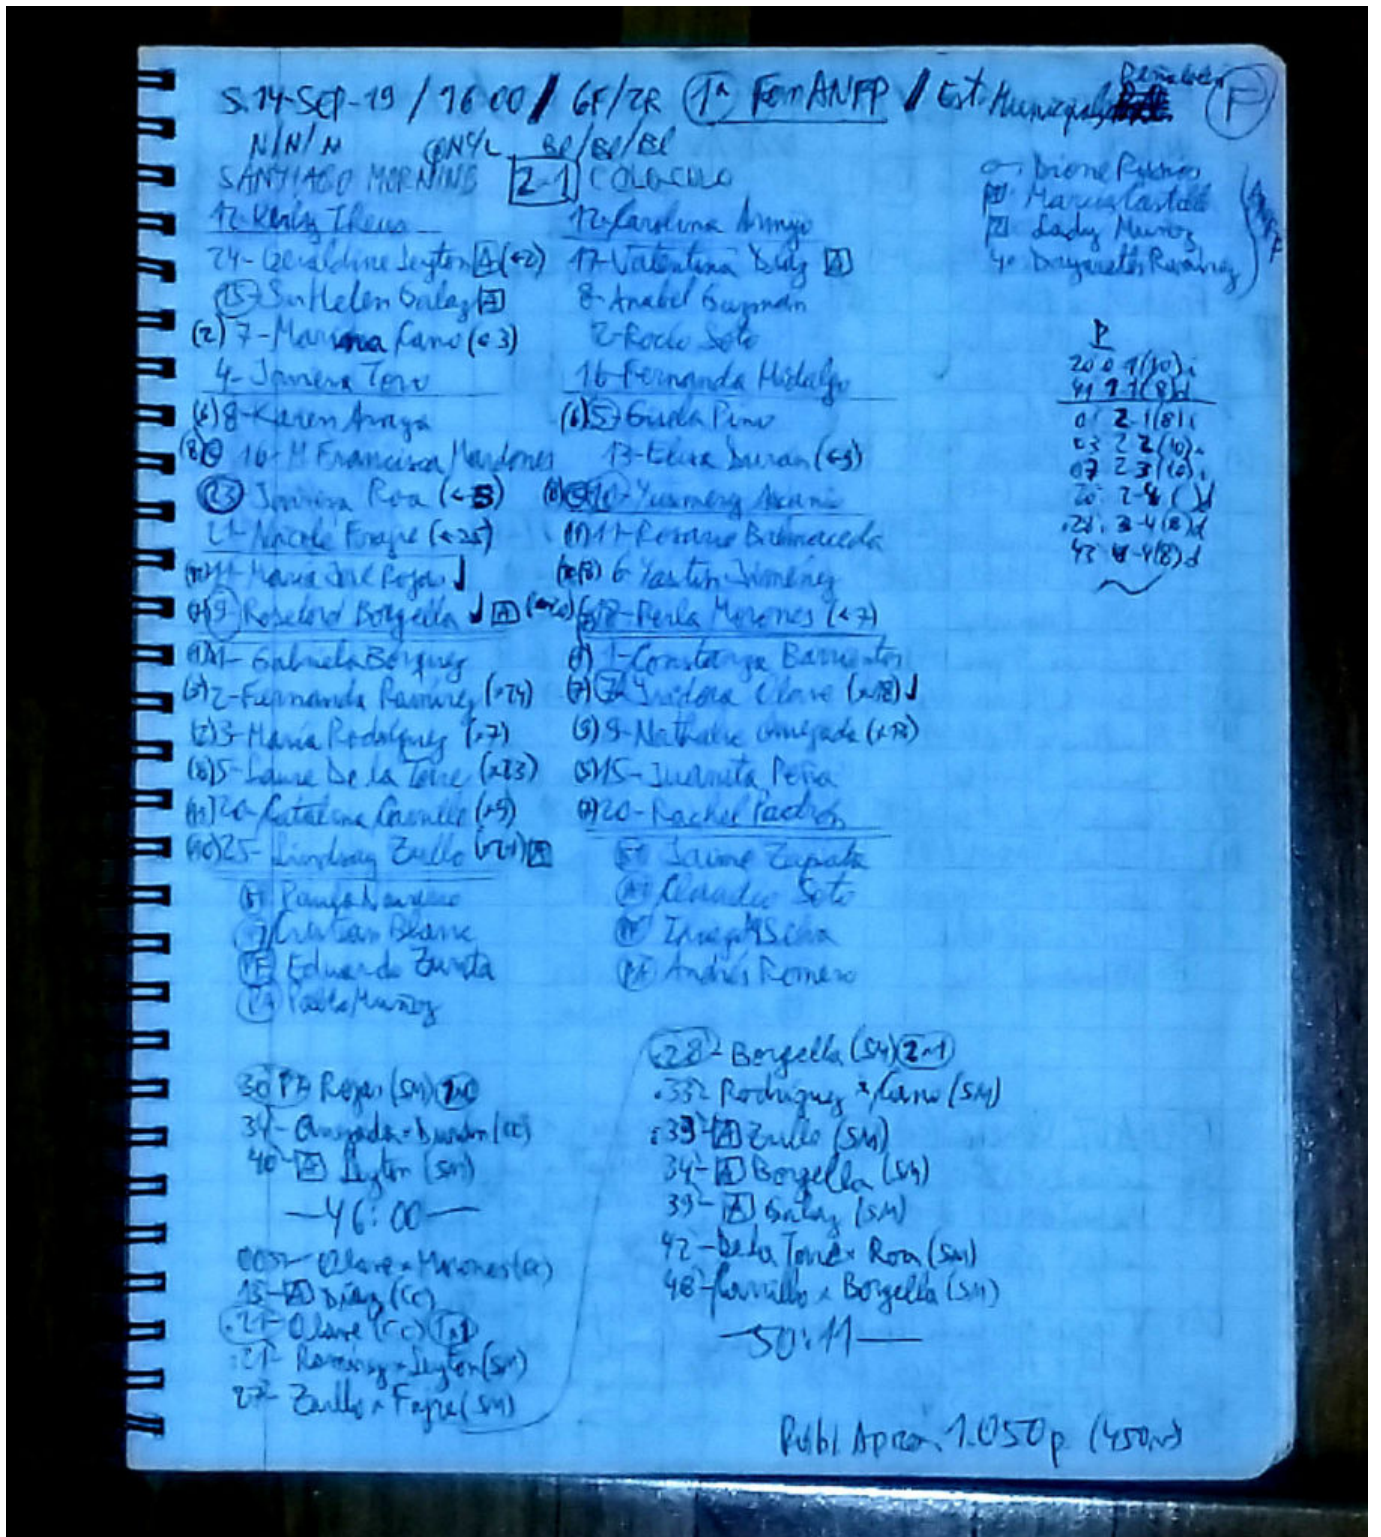 S.14-SEP-19 / 16 00 / 6F/2R 1ª FemANFP / Est. Municipal Peñalolén F
N/N/N Bl/Bl/Bl
SANTIAGO MORNING 2-1 COLOCOLO
12- Theus
24-Geraldine Leyton A (<2)
15-Su Helen Galaz A
(2) 7-Mariana Cano (<3)
4-Javiera Toro
(6) 8-Karen Araya
(8) 16-M Francisca Mardones
23 Javiera Roa (<5)
21-Nicole Fajre (<25)
11-María José Rojas
9-Roselord Borgella A
1-Gabriela Bórquez
2-Fernanda Ramírez (>24)
(2) 3-María Rodríguez (>7)
(8) 5-Laura De la Torre (>23)
20-Catalina Carrillo (>9)
(10) 25-Lindsay Zullo (>21) A
Paula Navarro
Cristian
PF Eduardo Zurita
Pablo Muñoz
12-Carolina Armijo
17-Valentina Díaz A
8-Anabel Guzmán
2-Rocío Soto
16-Fernanda Hidalgo
(6) 5-Gisela Pino
13-Elisa Durán (<9)
10-Yusmery Ascanio
11-Rosario Balmaceda
6-Yastin Jiménez
18-Perla Morones (<7)
1-Constanza Barrientos
7-Isidora Olave (>18)
(9) 9-Nathalie Quezada (>13)
15-Juanita Peña
20-Rachel Padrón
Jaime Zapata
Claudio Soto
Silva
Andrés Romero
Dione Rissios
Maria Castillo
Lady Muñoz
4- Dayaneth Ramírez
P
20 0 1(10) i
41 1-1(8)d
01 2-1(8)i
03 2 2(10) i
07 2 3(10) i
20 2-4 ( )d
.28. 3-4(8)d
43 4-4(8)d
30 PA Rojas (SM) 1-0
34-Quezada x Durán (CC)
40-A Leyton (SM)
—46:00—
00 Olave x Morones (CC)
15-A Díaz (CC)
.21-Olave (CC) 1-1
.21-Ramírez x Leyton (SM)
27-Zullo x Fajre (SM)
.28-Borgella (SM) 2-1
.33-Rodríguez x Cano (SM)
.33-A Zullo (SM)
34-A Borgella (SM)
39-A Galaz (SM)
42-De la Torre x Roa (SM)
48-Carrillo x Borgella (SM)
—50:11—
Publ. Aprox. 1.050p (450v)